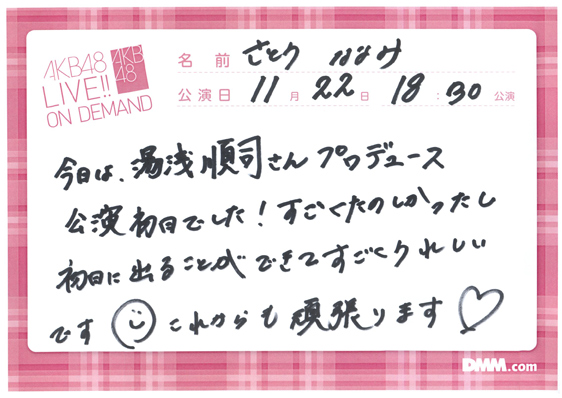 AKB48
LIVE!!
ON DEMAND
AKB
48
名前 さとう ななみ
公演日 11月 22日 18:30公演
今日は、湯浅順司さんプロデュース
公演初日でした！すごくたのしかったし
初日に出ることができてすごくうれしい
です これからも頑張ります
DMM.com